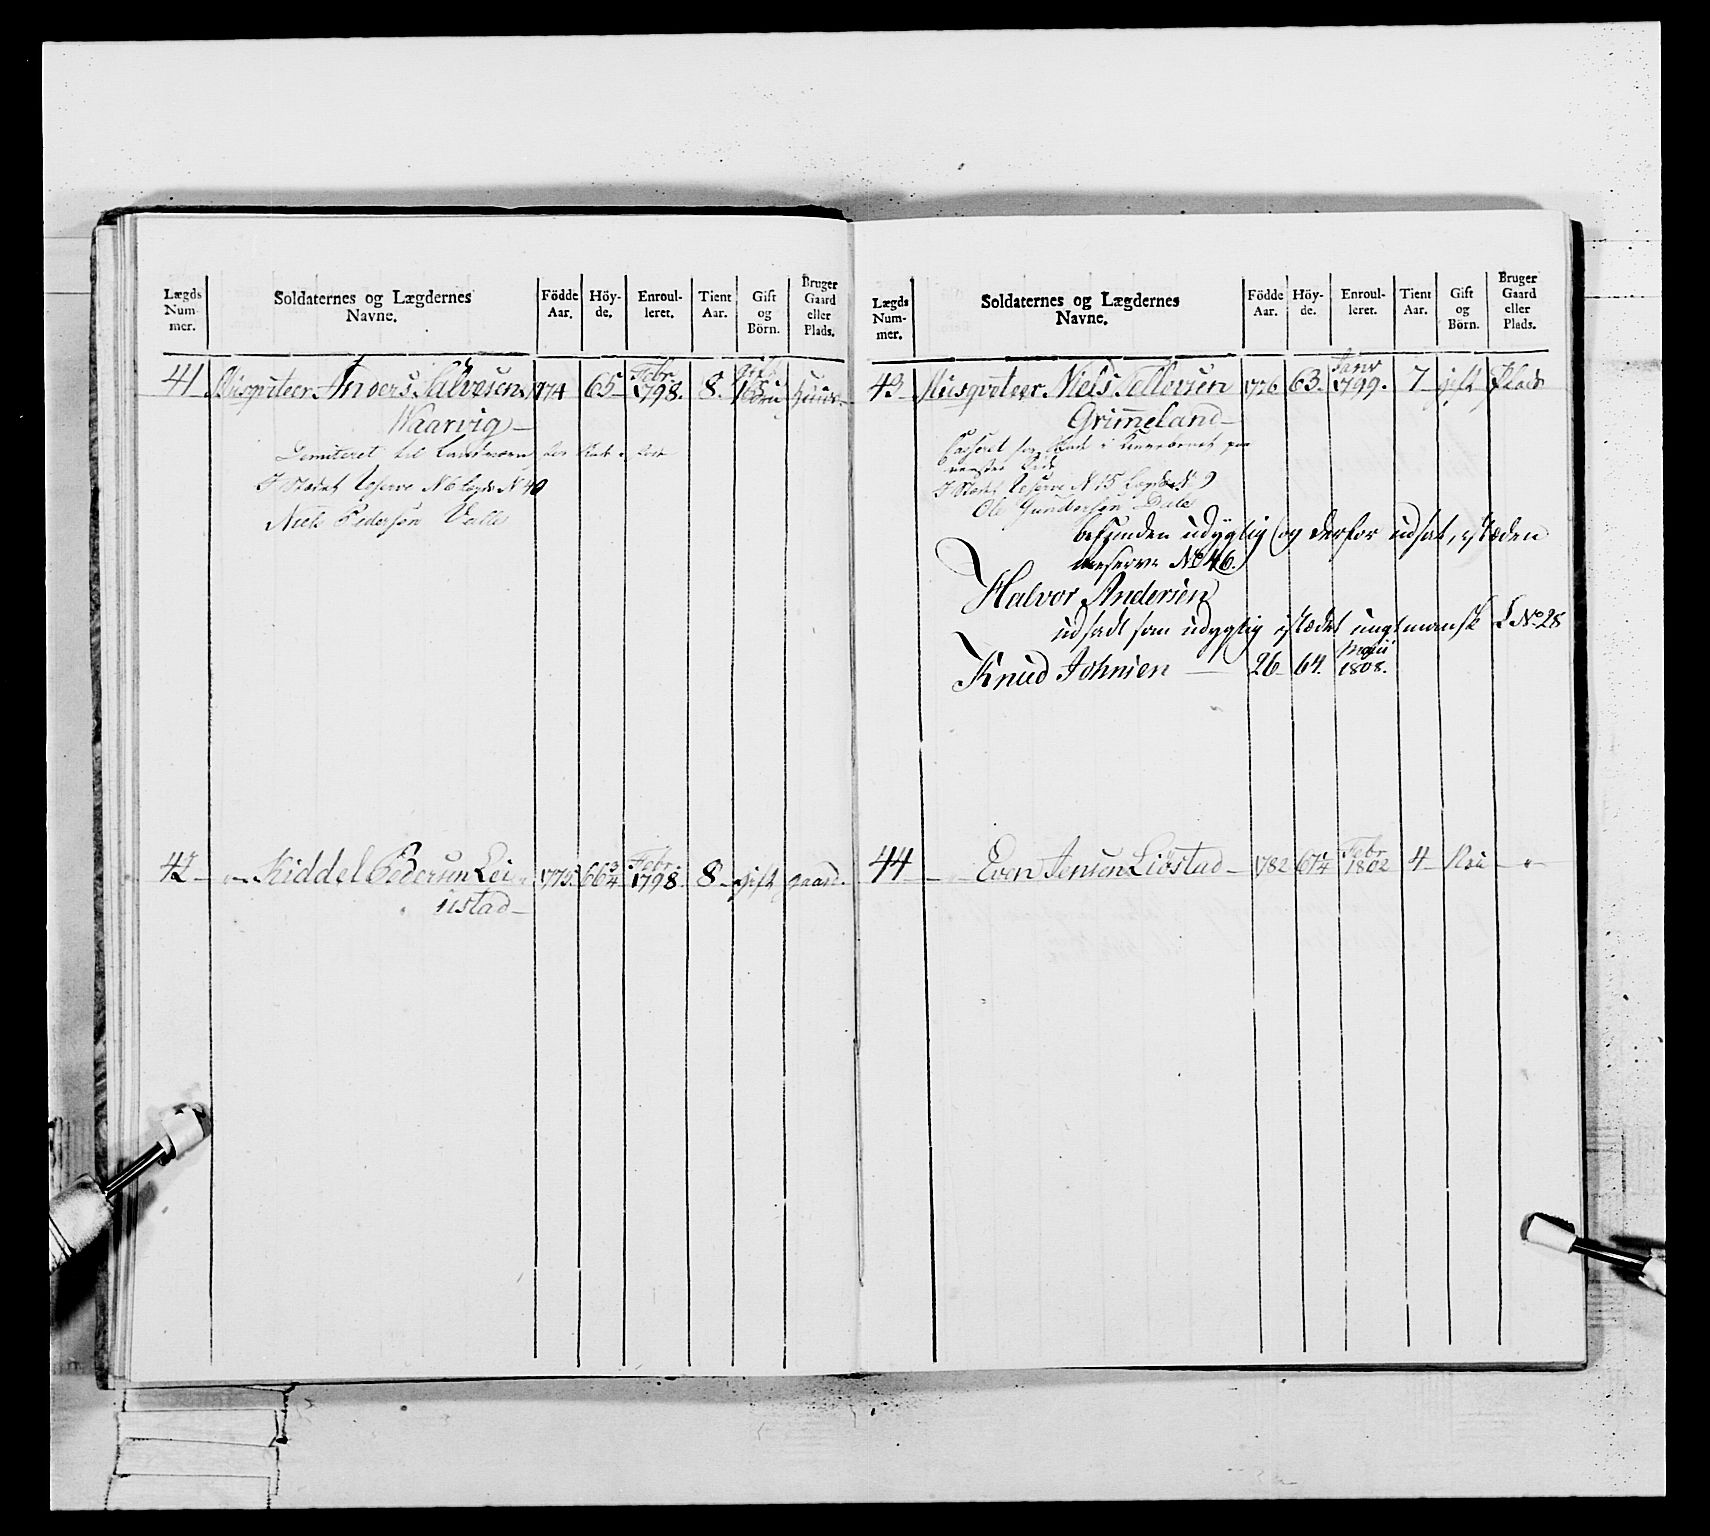 Lægds Num- mer. Soldaternes og Lægdernes Navne. Födde Aar. Höy- de. Enroul- leret. Tient Aar. Gift og Börn. Bruger Gaard eller Plads.
41 Musqveteer Anders Salvesen 1774 65 Febr 1798. 8. Gift
Waarvig
Demiteret til Landværn
I Stædet Reserve N 6 Lægds N 40
Niels Pedersøn Valle
42 Kiddel Pedersen Lei 1775. 66 3/4 Febr 1798. 8 gift gaard.
ustad
Lægds Num- mer. Soldaternes og Lægdernes Navne. Födde Aar. Höy- de. Enroul- leret. Tient Aar. Gift og Börn. Bruger Gaard eller Plads.
43 Musqveteer Niels Tellefsen 1776 63. Janv 1799. 7 gift Plads
Grimeland
Casseret for Skade i
venstre
I Stædet Reserve N 15 Lægds N 9
Ole Gundersøn Dale
befunden udygtig og derfor udsat, istæden
Reserve No 46.
Halvor Andersen
udsadt som udygtig istædet ungtmansk L No 28
Knud Johnsen 26 64. Maii 1808.
44 Even Jensen Lidstad 1782 67 1/4 Febr 1802 4